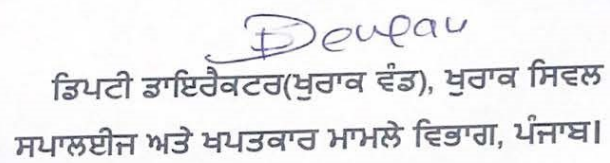 ਡਿਪਟੀ ਡਾਇਰੈਕਟਰ(ਖੁਰਾਕ ਵੰਡ), ਖੁਰਾਕ ਸਿਵਲ
ਸਪਾਲਈਜ ਅਤੇ ਖਪਤਕਾਰ ਮਾਮਲੇ ਵਿਭਾਗ, ਪੰਜਾਬ।